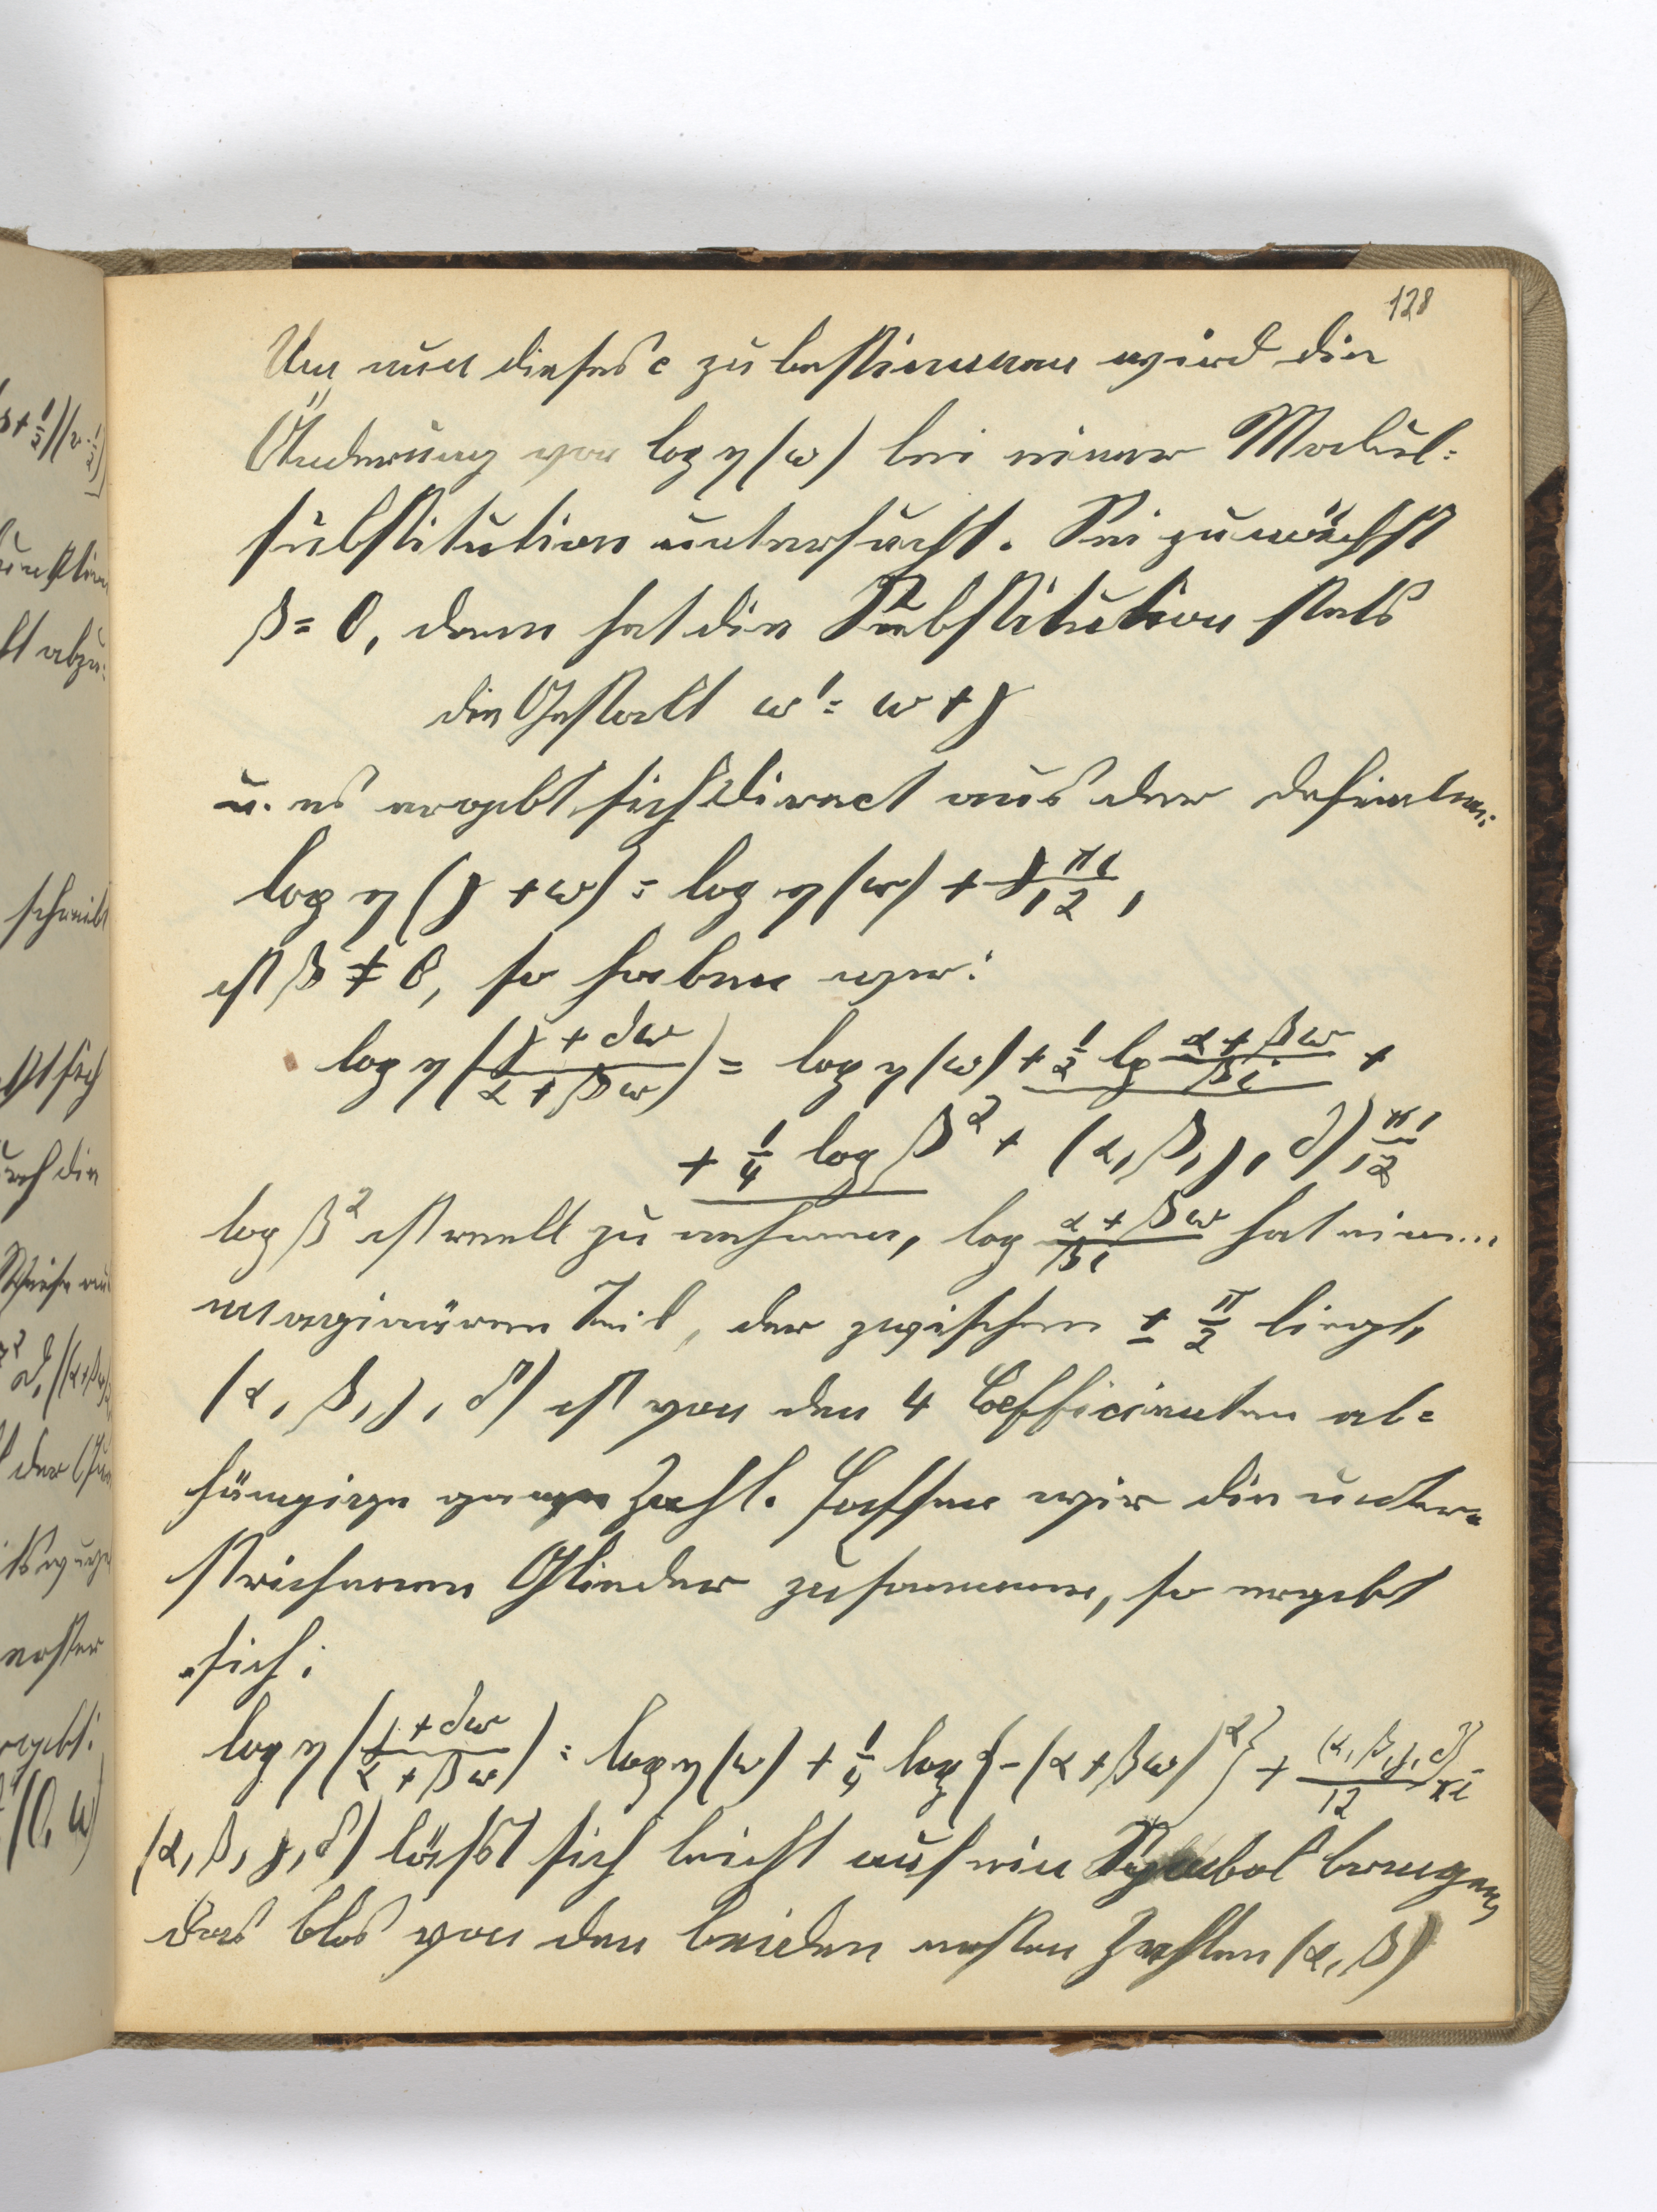 128
Um nun dieses c zu bestimmen wird die
Änderung von log η(ω) bei einer Modul=
substitution untersucht. Sei zunächst
β = 0, dann hat die Substitution stets
die Gestalt ω' = ω + γ
u. es ergibt sich direct aus der Definition:
log η (γ + ω) = log η (ω) + γ πi/12,
ist β ≠ 0, so haben wir:
log η ((γ + δω)/(α + βω)) = log η (ω) + 1/2 lg (α + βω)/(βi) +
+ 1/4 log β² + (α, β, γ, δ) πi/12
log β² ist reell zu nehmen, log (α + βω)/(βi) hat einen
imaginären Teil, der zwischen ± π/2 liegt,
(α, β, γ, δ) ist von den 4 Coefficienten ab=
hängige ganze Zahl. Fassen wir die unter=
strichenen Glieder zusammen, so ergibt
sich:
log η ((γ + δω)/(α + βω)) = log η (ω) + 1/4 log {-(α + βω)²} + (α, β, γ, δ)/12 πi
(α, β, γ, δ) lässt sich leicht auf ein Symbol bringen,
das blos von den beiden ersten Zahlen (α, β)
s + 1/2)(
ht abzu=
schreibt
sich
durch die
Weise
der
erster
ergibt:
(0, ω)